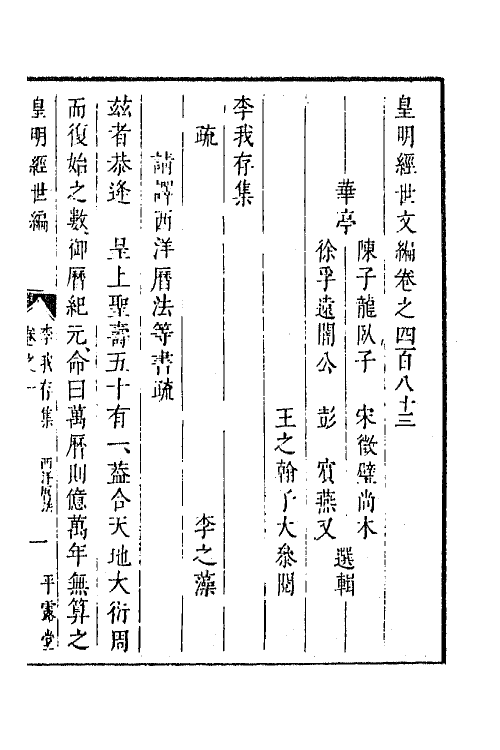 皇明經世文編卷之四百八十三
華亭
陳子龍臥子　宋徵璧尚木
徐孚遠闇公　彭　賓燕又
選輯
王之翰　大參閱
李我存集
疏　李之藻
請譯西洋曆法等書疏
玆者恭逄　皇上聖壽五十有一、葢合天地大衍周
而復始之數、御曆紀元、命曰萬曆則億萬年無算之
皇明經世編　李我存集　卷之一　西洋曆法　一　平露堂